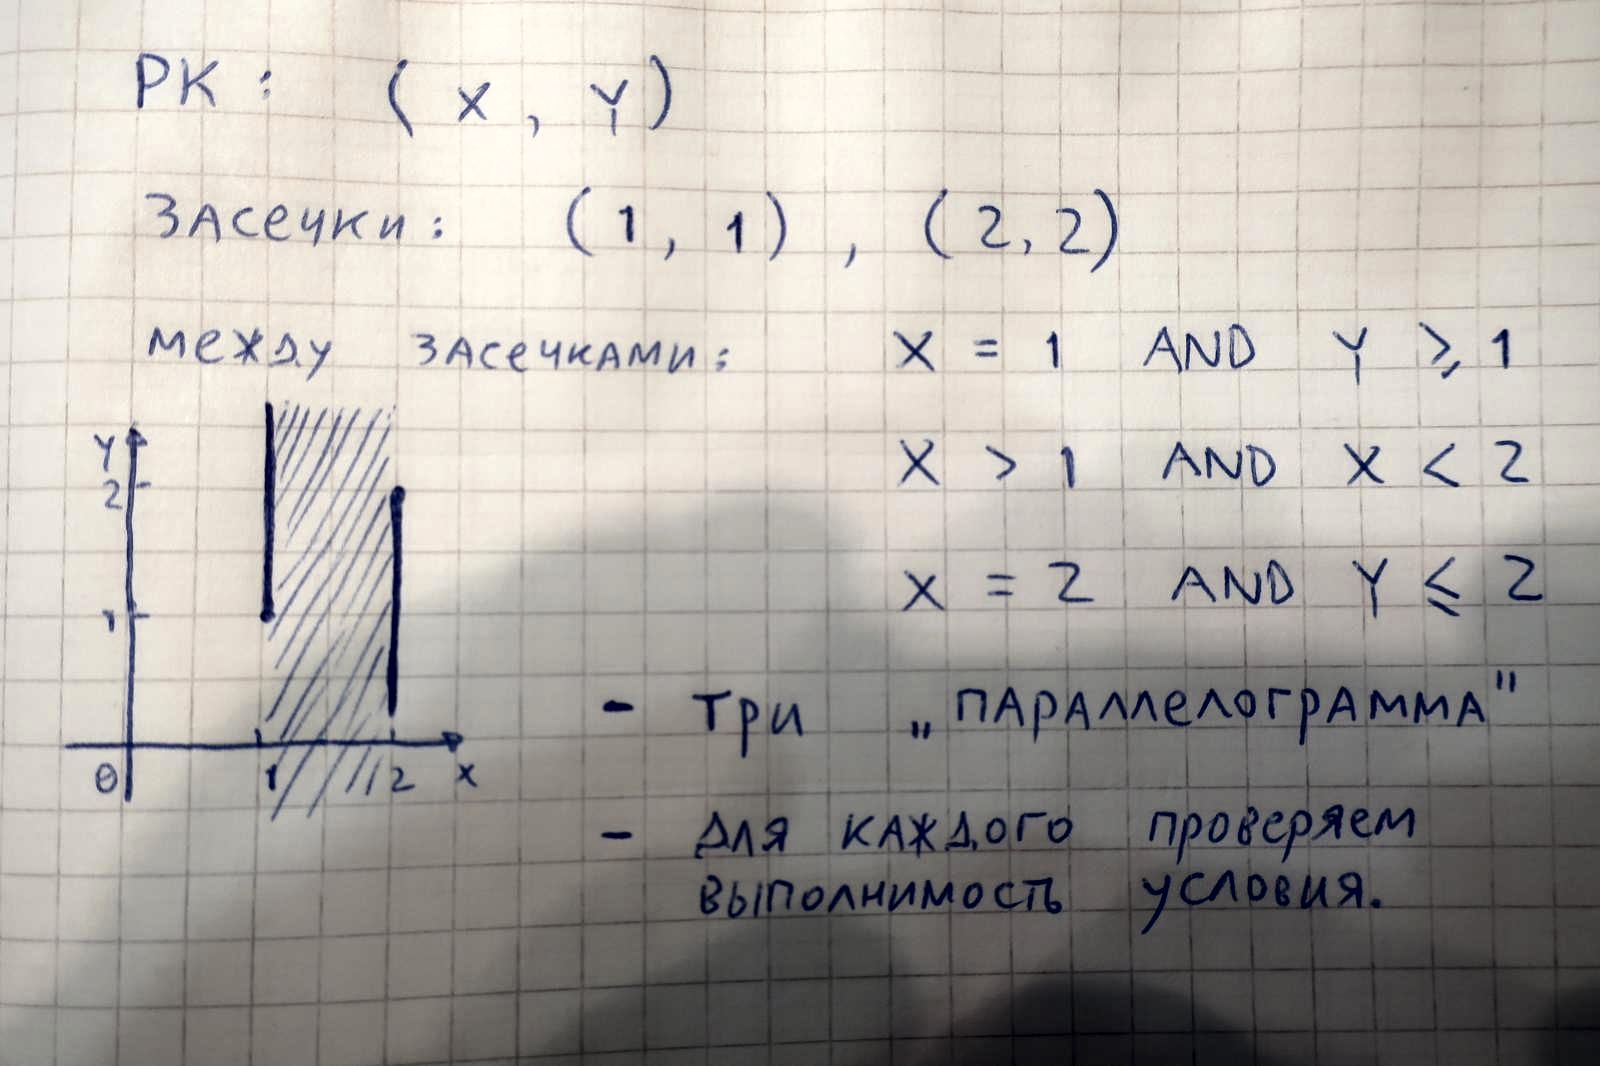 РК: (X, Y)
Засечки: (1, 1), (2, 2)
между засечками: X = 1 AND Y ⩾ 1
X > 1 AND X < 2
X = 2 AND Y ≤ 2
Y
2
1
0 1 2 X
- три „параллелограмма"
- для каждого проверяем
выполнимость условия.